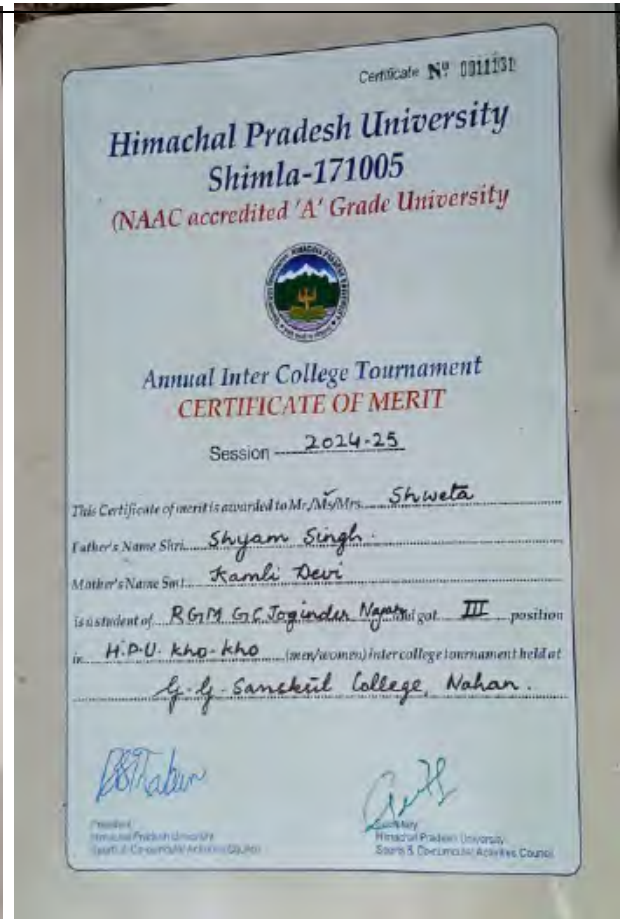 Certificate Nº 0011131
Himachal Pradesh University
Shimla-171005
(NAAC accredited 'A' Grade University
Annual Inter College Tournament
CERTIFICATE OF MERIT
Session 2024-25
This Certificate of merit is awarded to Mr./Ms/Mrs. Shweta
Father's Name Shri. Shyam Singh.
Mother's Name Smt. Kamli Devi
is a student of RGM GC Joginder Nagar and got III position
in H.P.U. Kho-Kho (men/women) inter college tournament held at
College, Nahan.
President
Himachal Pradesh University
Sports & Co-curricular Activities Council
Secretary
Himachal Pradesh University
Sports & Co-curricular Activities Council